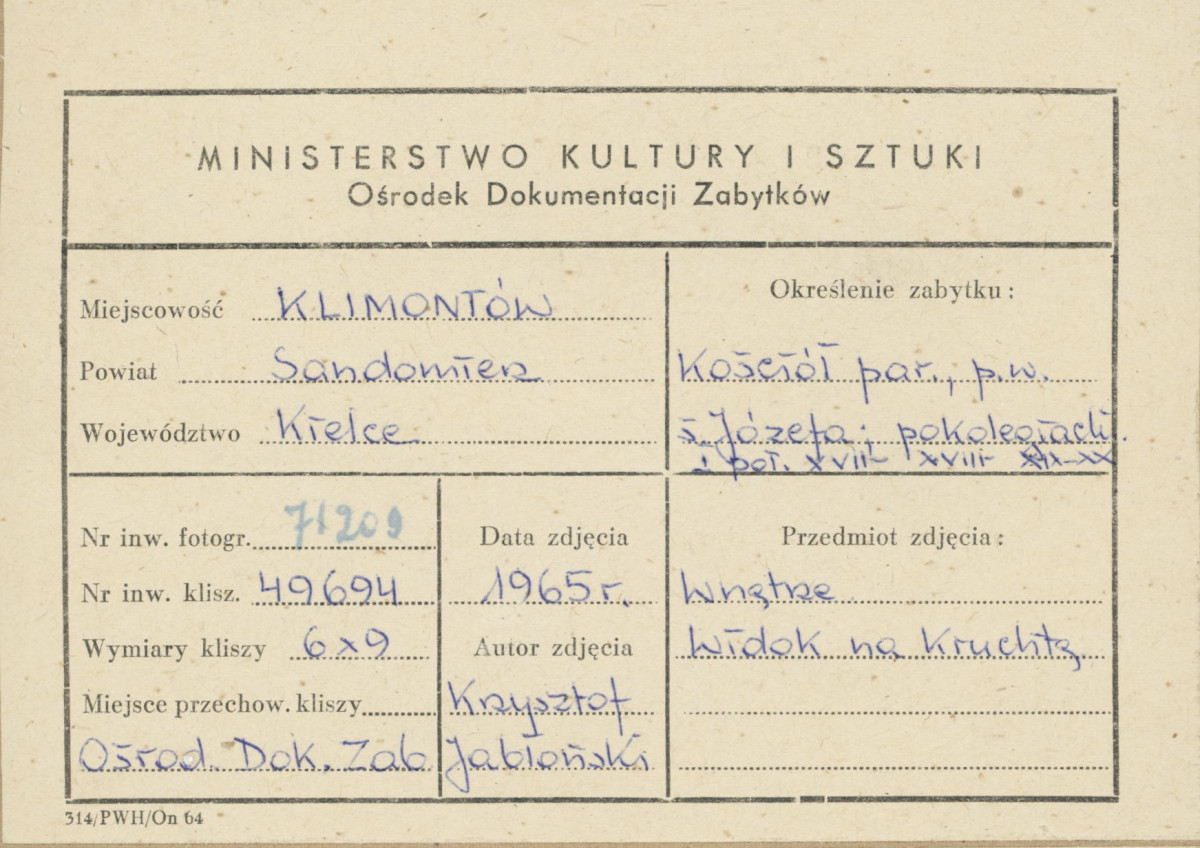 MINISTERSTWO KULTURY I SZTUKI
Ośrodek Dokumentacji Zabytków
Miejscowość KLIMONTÓW
Powiat Sandomierz
Województwo Kielce
Określenie zabytku:
Kościół par., p.w.
ś. Józefa; pokolegiacki.
i poł. XVII- XVIII- XIX-XX
Nr inw. fotogr. 71209
Nr inw. klisz. 49694
Wymiary kliszy 6x9
Miejsce przechow. kliszy
Ośrod. Dok. Zab
Data zdjęcia
1965 r.
Autor zdjęcia
Krzysztof
Jabłoński
Przedmiot zdjęcia:
Wnętrze
Widok na Kruchtę
314/PWH/On 64